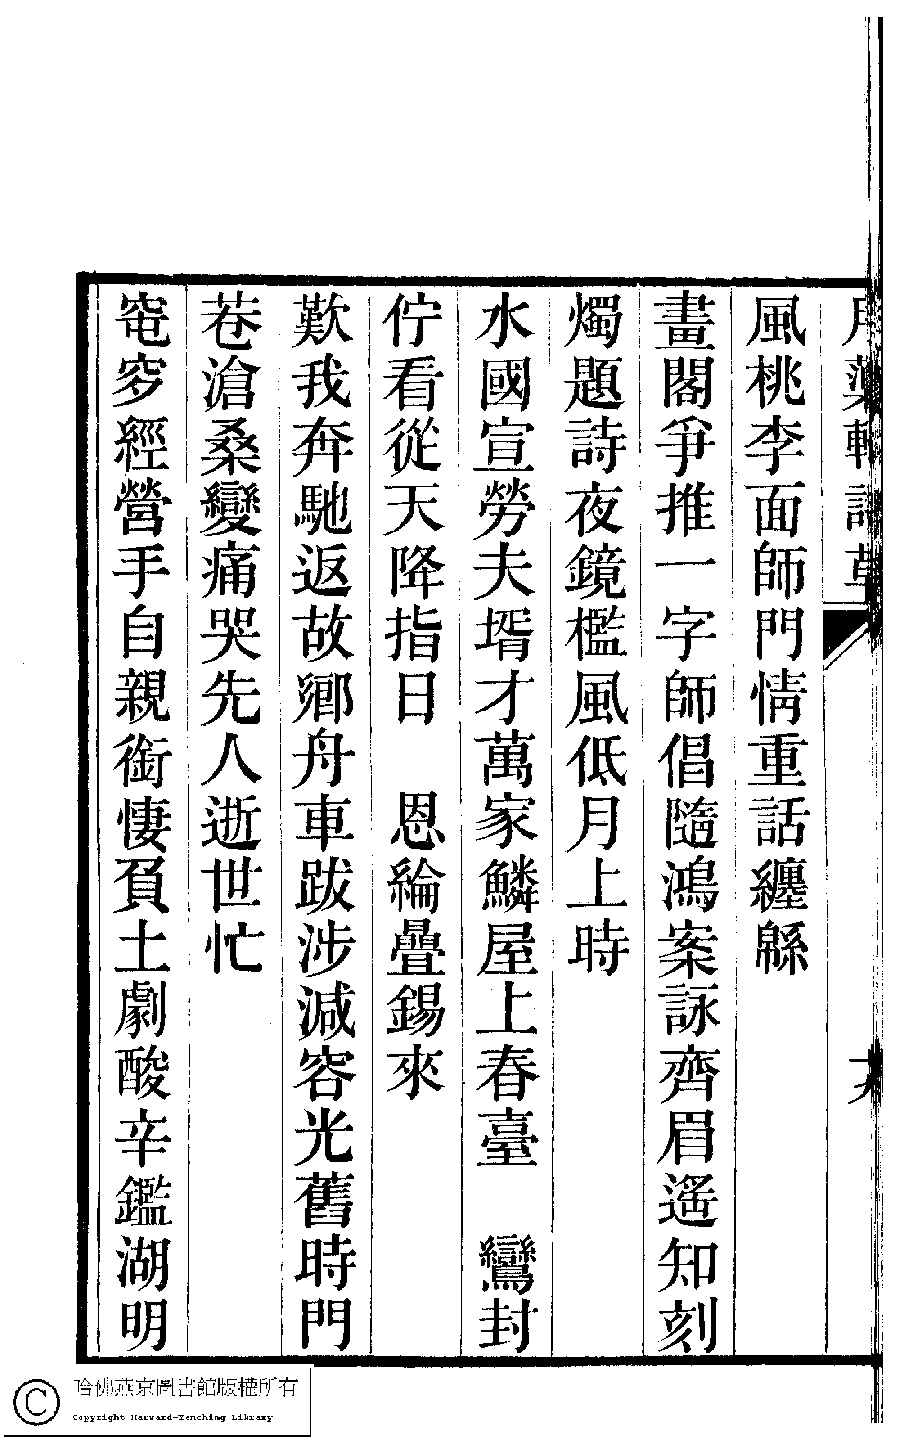 風桃李面師門情重話纏緜
畫閣爭推一字師倡隨鴻案詠齊眉遙知刻
燭題詩夜鏡檻風低月上時
水國宣勞夫壻才萬家鱗屋上春臺　鸞封
佇看從天降指日　恩綸疊錫來
歎我奔馳返故鄉舟車跋涉減容光舊時門
巷滄桑變痛哭先人逝世忙
窀穸經營手自親銜悽負土劇酸辛鑑湖明
哈佛燕京圖書館版權所有
Copyright Harvard-Yenching Library